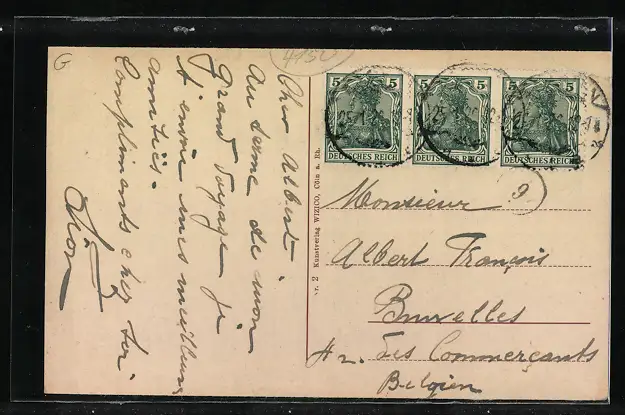 Cher Albert
Au terme de mon
grand voyage je
t'envoie mes meilleures
amitiés.
Compliments chez toi
5 5
DEUTSCHES REICH
5 5
DEUTSCHES REICH
5 5
DEUTSCHES REICH
Monsieur
Albert François
Bruxelles
des Commerçants
Belgien
Nr. 2 Kunstverlag WIZICO, Cöln a. Rh.